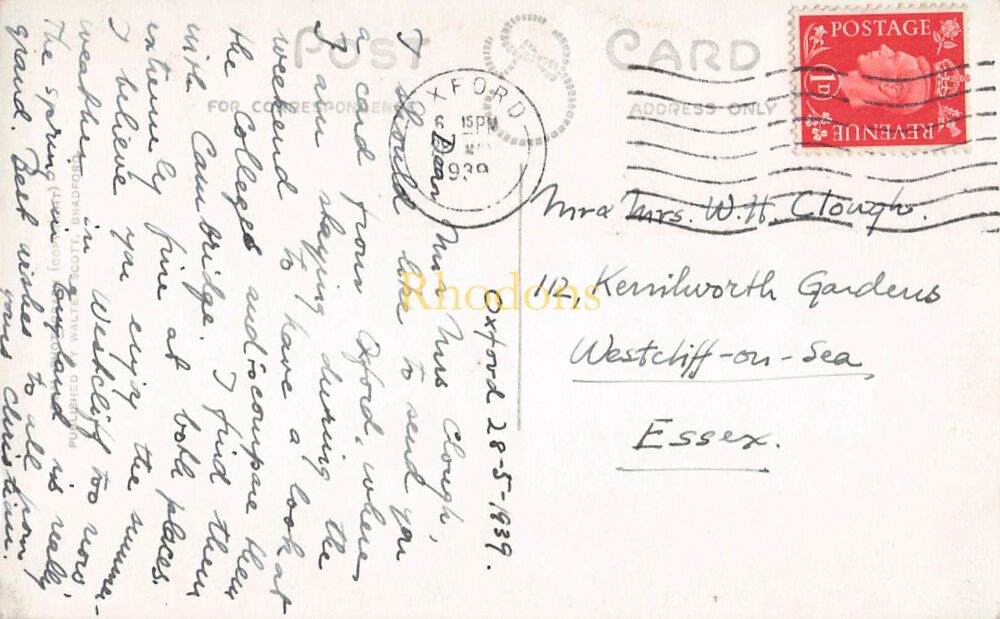 POST CARD
FOR CORRESPONDENCE
ADDRESS ONLY
POSTAGE
1D
REVENUE
OXFORD
6 15PM
1939
Oxford 28-5-1939.
Dear Mr & Mrs Clough,
I should like to send you
a card from Oxford, where
I am staying during the
weekend to have a look at
the Colleges and to compare them
with Cambridge. I find them
extremely fine at both places.
I believe you enjoy the summer-
weather in Westcliff too now.
The spring in England is really
grand. Best wishes to all from
yours Christian.
Mr & Mrs. W.H. Clough.
112, Kenilworth Gardens
Westcliff-on-Sea
Essex.
PUBLISHED BY WALTER SCOTT, BRADFORD
(COPYRIGHT)
Rhodons